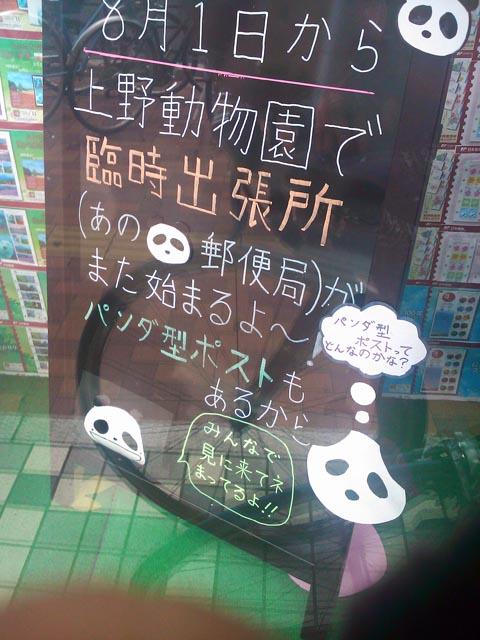 8月1日から
上野動物園で
臨時出張所
(あの 郵便局)が
また始まるよ〜
パンダ型ポストも
あるから
みんなで
見に来てネ
まってるよ!!
パンダ型
ポストって
どんなのかな?